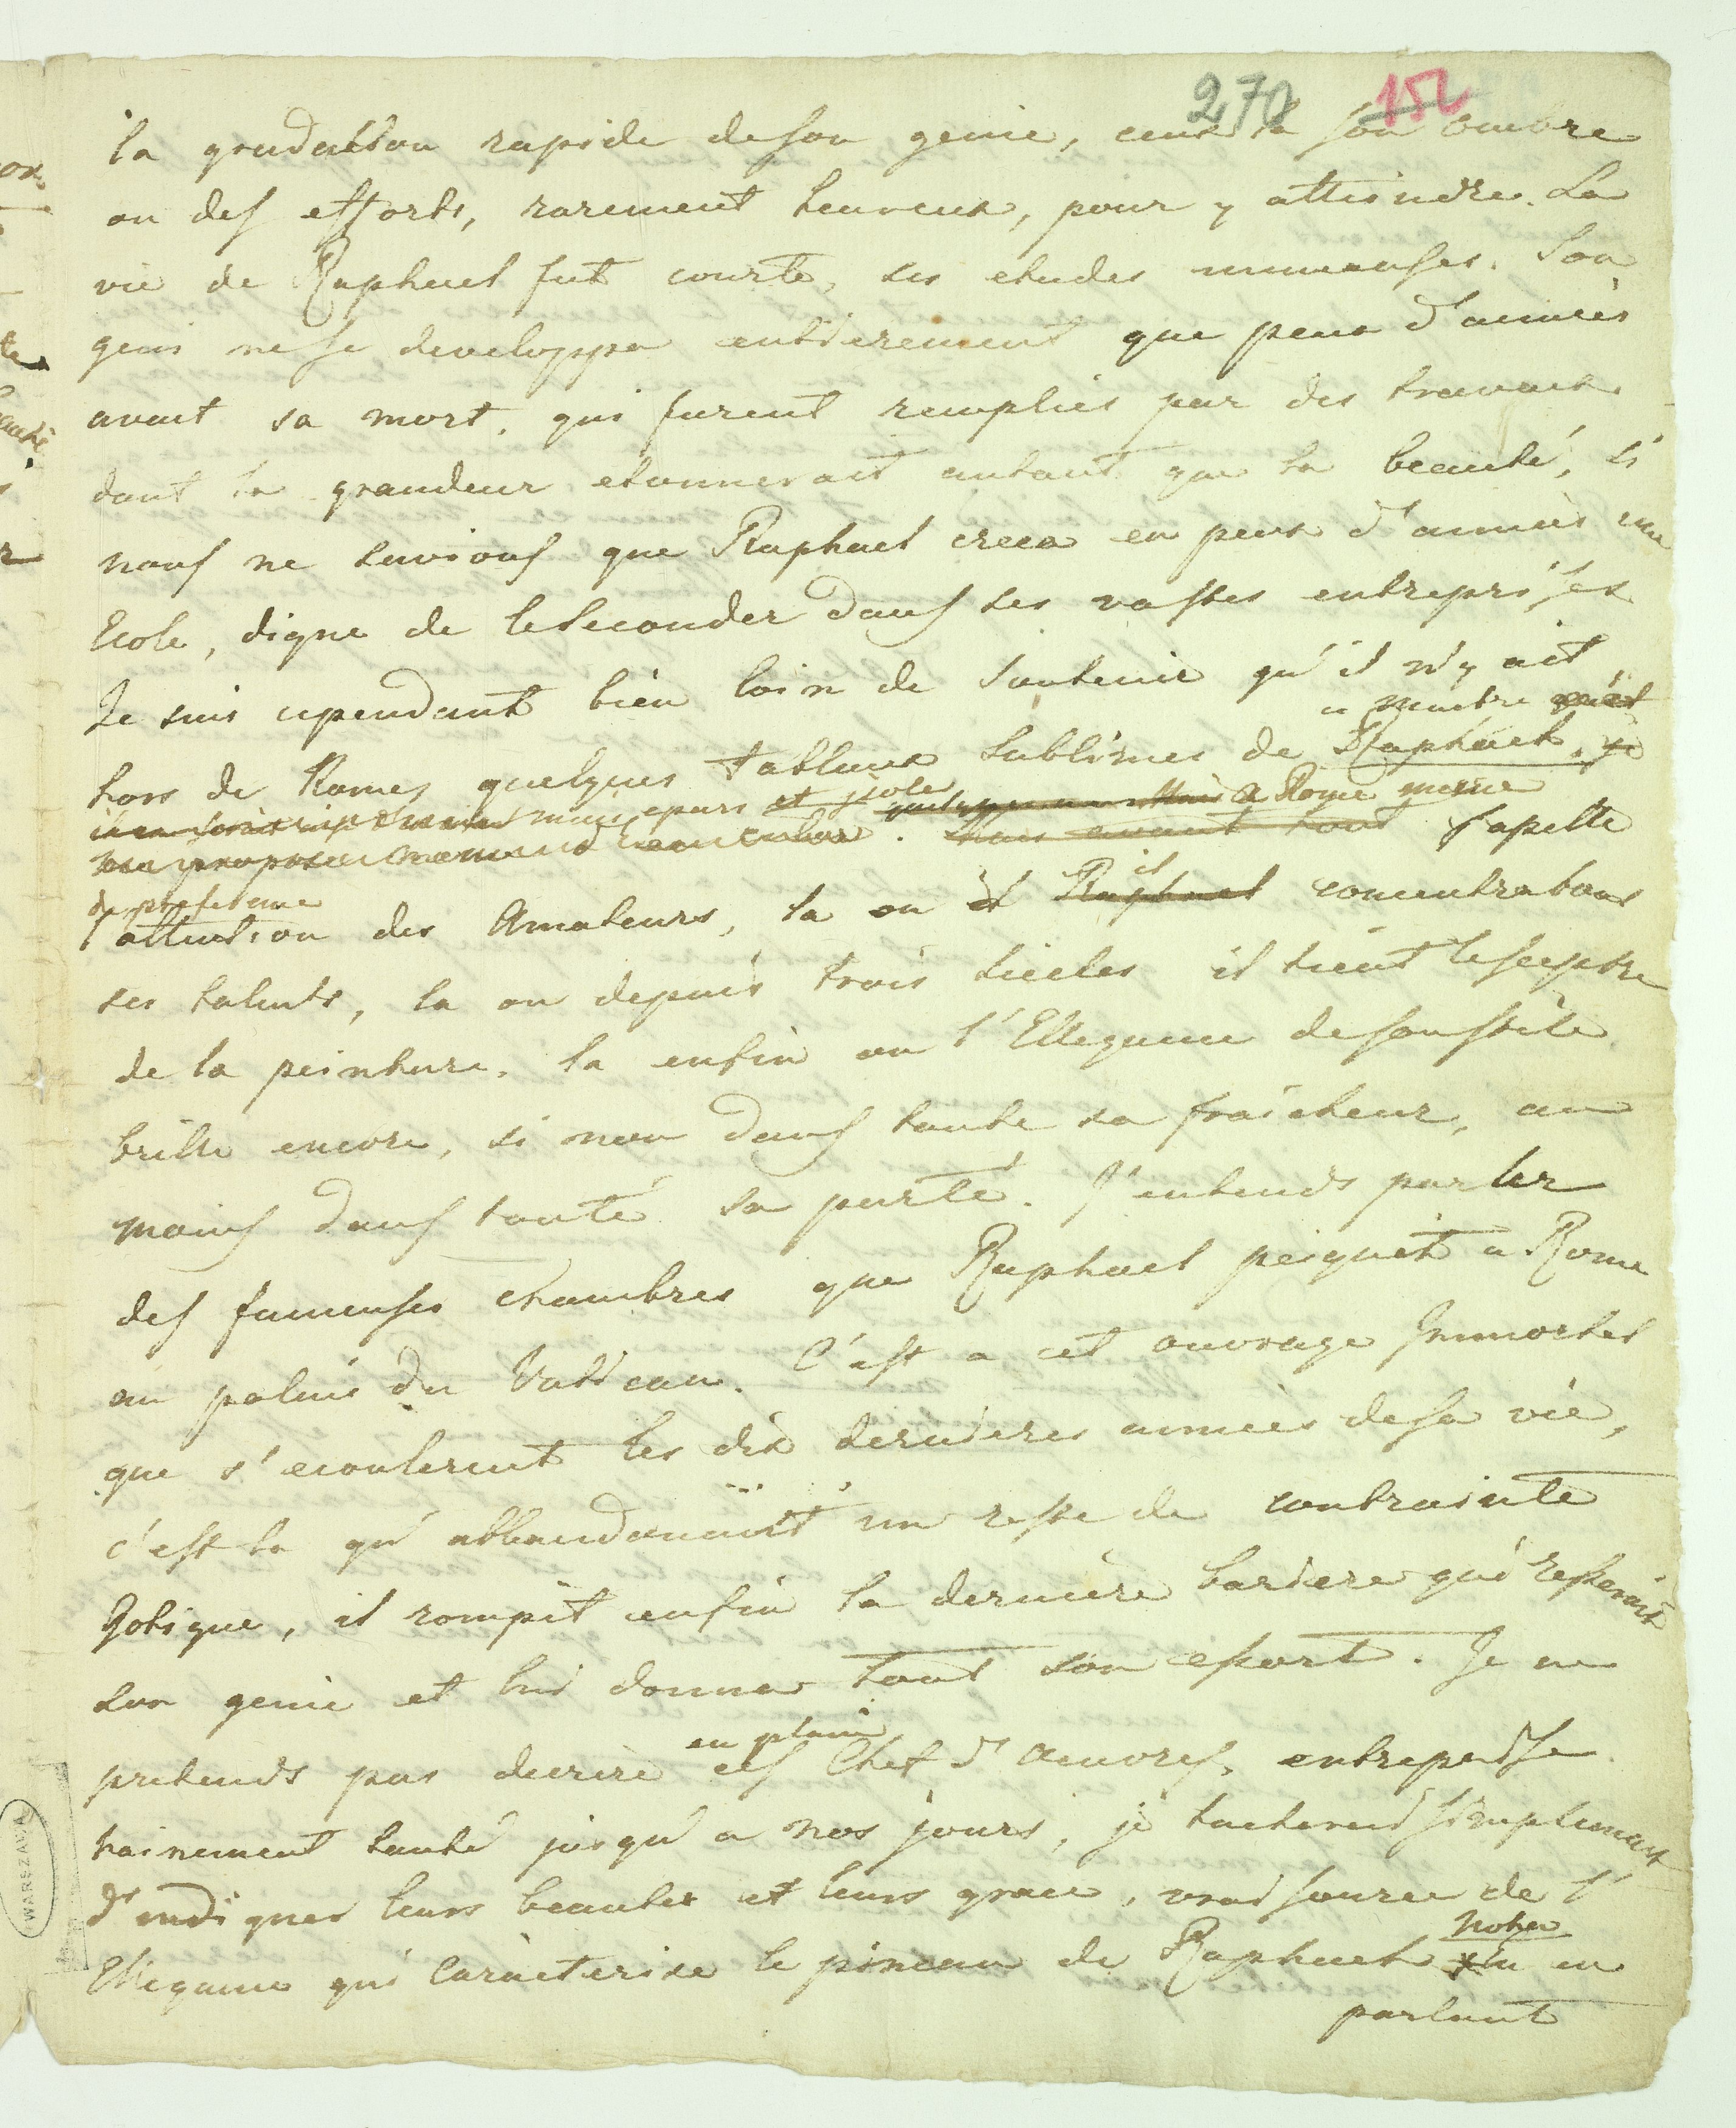 270 152
la gradation rapide de son genie, ceux la son ombre
ou des efforts, rarement heureux, pour y atteindre. La
vie de Raphael fut courte, ses etudes immenses. Son
genie ne se developpa entierement que peux d'années
avant sa mort, qui furent remplies par des travaux
dont la grandeur etonnerait autant que la beauté, si
nous ne savions que Raphael creea en peux d'années une
Ecole, digne de le seconder dans ses vastes entreprises
Je suis cependant bien loin de soutenir qu'il n'y ait
hors de Rome, quelques tableaux sublimes de Raphael. je
mais epars et isole a Rome meme
. Mais avant tout j'apelle
de preference
l'attention des Amateurs, la ou il Raphael concentra tous
ses talents, la ou depuis trois siecles il tient le sceptre
de la peinture, la enfin ou l'Ellegance de son stile
brille encore, si non dans toute sa fraicheur, au
moins dans toute sa pureté. J'entends parler
des fameuses chambres que Raphael peignit a Rome
au palais du Vatican. C'est a cet ouvrage Immortel
que s'ecoulerent les dix dernieres années de sa vie,
c'est la qu'abbandonant un reste de contrainte
Gotique, il rompit enfin la derniere bariere qui resserait
son genie et lui donna tout son essort. Je ne
en plain
pretends pas decrire ces Chef d'Oeuvres, entreprise
vainement tenté jusqu'a nos jours, je tacherais simplement
d'indiquer leurs beautes et leurs grace, vrai source de l'
Nota
Ellegance qui Caracterise le pinceau de Raphael en
parlant
WARSZAWA